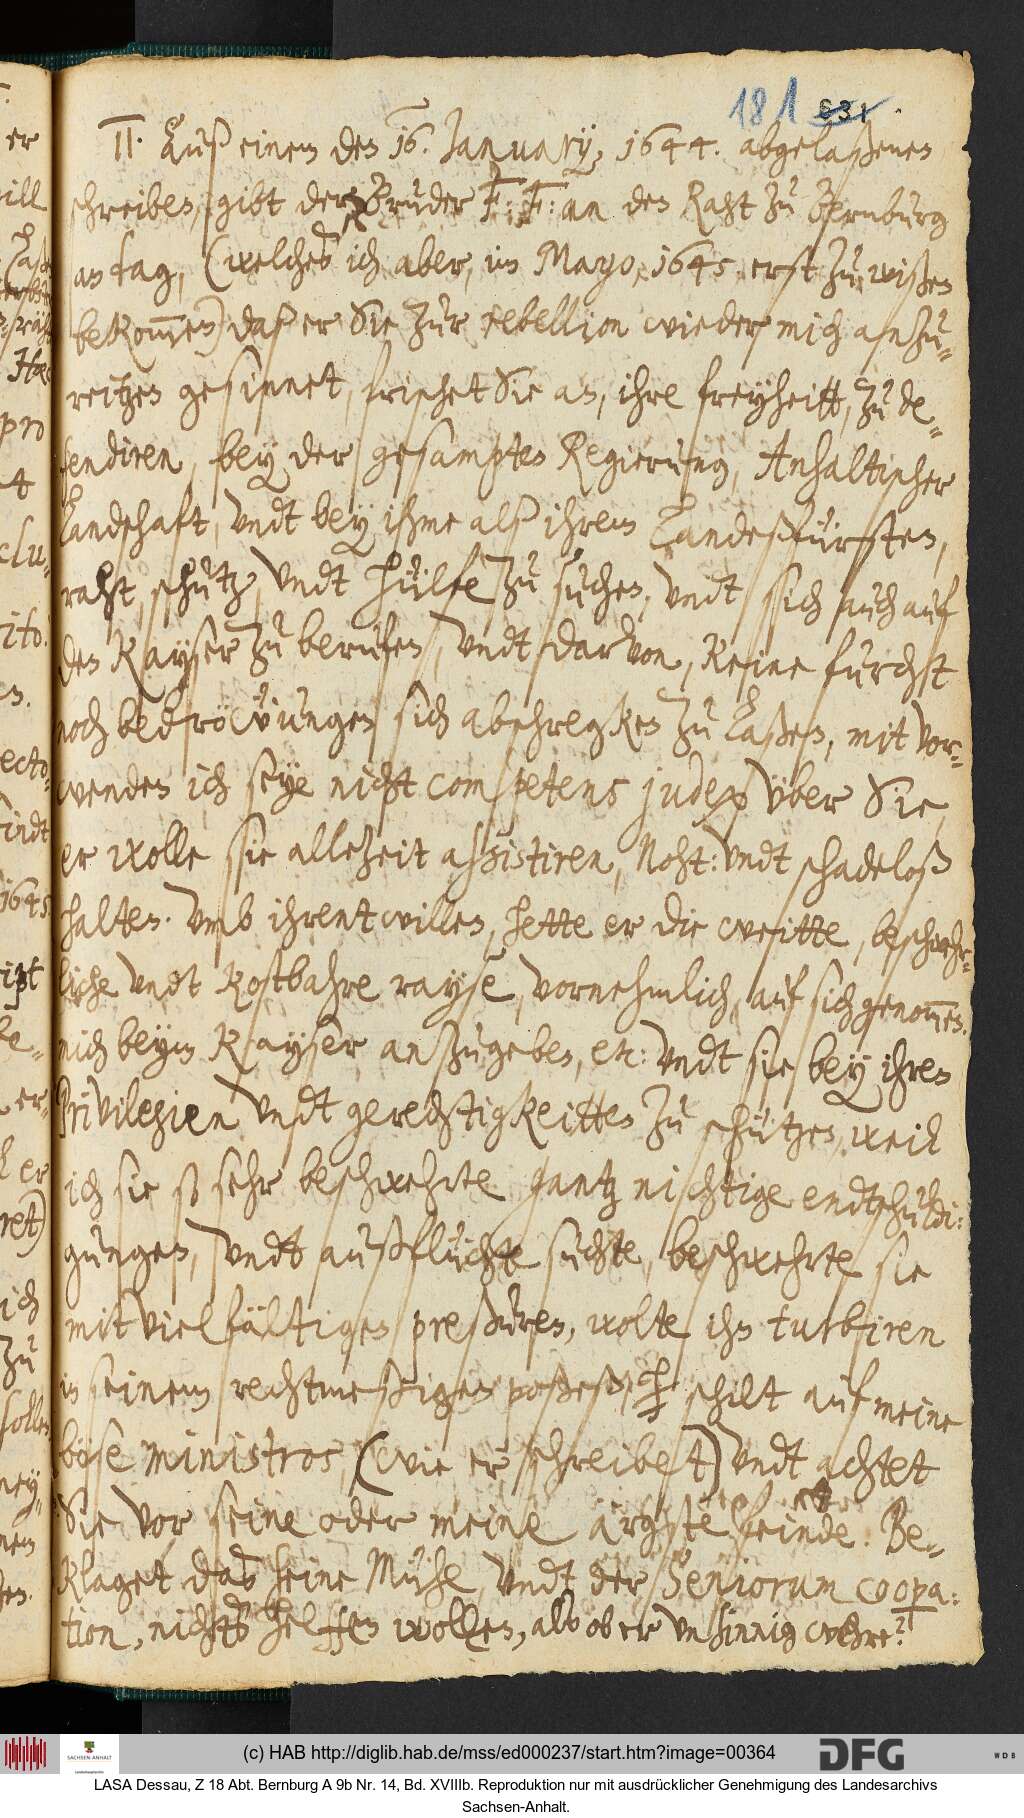 181 631
II. Auß einem den 16. January, 1644. abgelaßenen
schreiben, gibt der Bruder F: F: an den Raht zu Bernburg
an tag, (welches ich aber, im Mayo, 1645. erst zu wißen
bekommen) daß er Sie zur rebellion wieder mich anzu-
reitzen gesinnet, frischet Sie an, ihre freyheitt, zu de-
fendiren, bey der gesampten Regierung, Anhaltischer
Landschaft, undt bey ihme alß ihrem Landeßfürsten,
raht, schutz, undt hülfe zu suchen, undt sich auch auf
den Kayser zu berufen, undt darvon, keine furcht
noch bedröwungen sich abschregken zu laßen, mit vor-
wenden ich seye nicht competens judex über Sie,
er wolle sie allezeit assistiren, Noht: undt schadeloß
halten. Umb ihrent willen, hette er die weitte, beschwehr-
liche undt kostbahre rayse, vornehmlich, auf sich genommen.
mich beym Kayser, anzugeben, etc: undt sie bey ihren
Privilegien undt gerechtigkeitten zu schützen, weil
ich sie so sehr beschwehrte gantz nichtige endtschuldi-
gungen, undt außflüchte suchte, beschwehrte sie
mit vielfältigen preßuren, wolte ihn turbiren
in seinem rechtmeßigen poßeß, Er schilt auf meine
böse ministros, (wie er schreibet) undt achtet
Sie vor seine oder meine ärgste feinde. Be-
klaget das seine Mühe, undt der Seniorum coopa-
tion, nichts helffen wollen, als ob er unsinnig wehre?
(c) HAB http://diglib.hab.de/mss/ed000237/start.htm?image=00364
DFG
WDB
SACHSEN-ANHALT
LASA Dessau, Z 18 Abt. Bernburg A 9b Nr. 14, Bd. XVIIIb. Reproduktion nur mit ausdrücklicher Genehmigung des Landesarchivs
Sachsen-Anhalt.